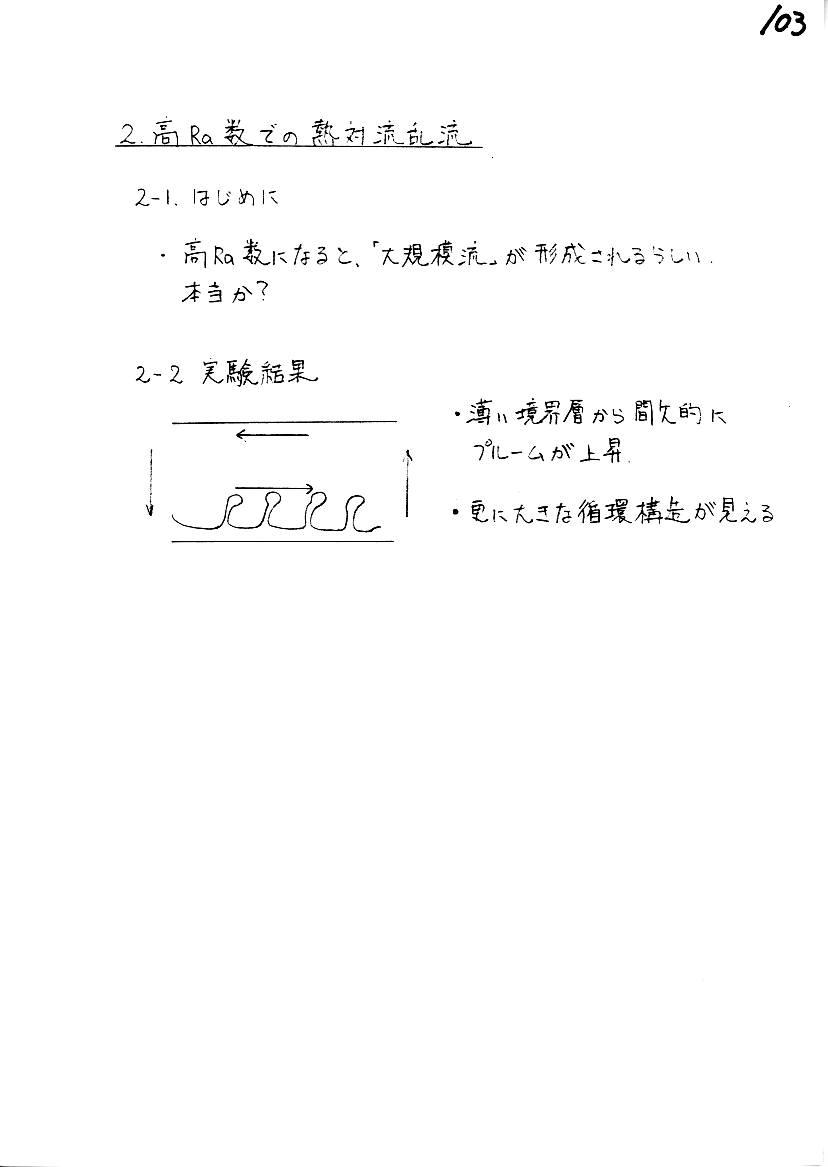 103
2. 高Ra数での熱対流乱流
2-1. はじめに
・高Ra数になると、「大規模流」が形成されるらしい.
本当か?
2-2 実験結果
・薄い境界層から間欠的に
プルームが上昇.
・更に大きな循環構造が見える